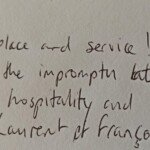 place and service!
the impromptu
hospitality and
Laurent et Franço